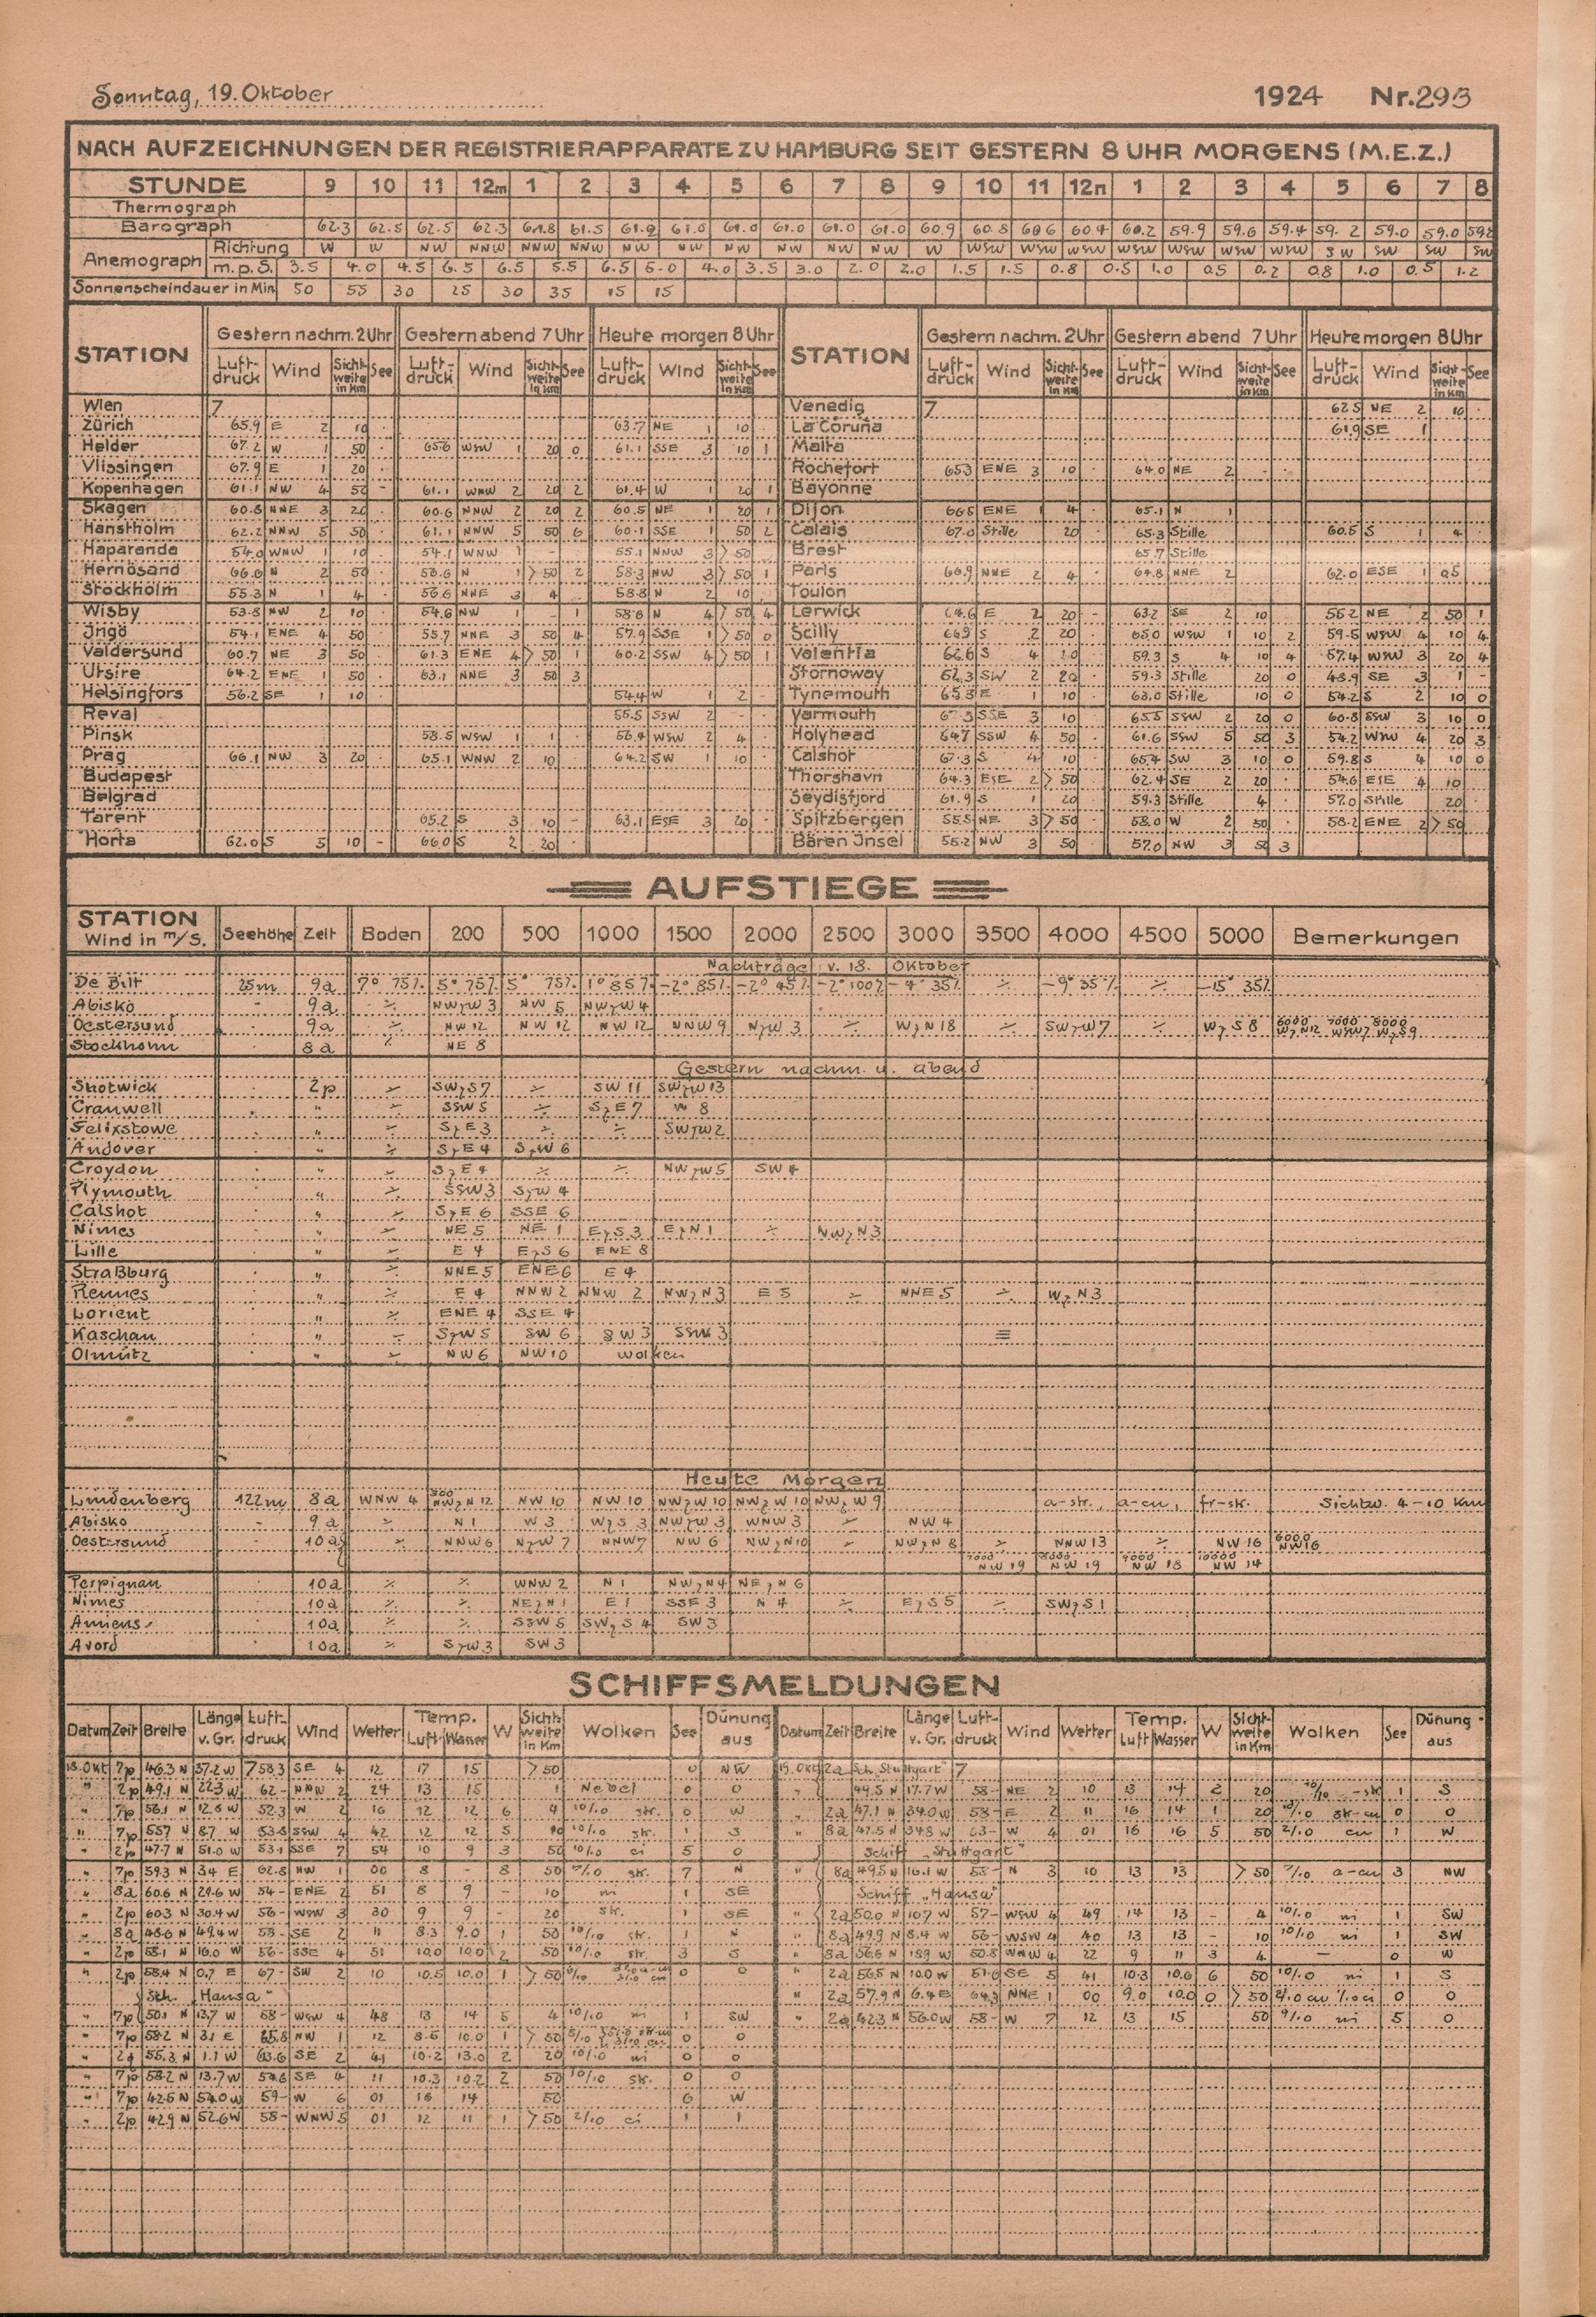 Sonntag, 19. Oktober 1924 Nr. 293
NACH AUFZEICHNUNGEN DER REGISTRIERAPPARATE ZU HAMBURG SEIT GESTERN 8 UHR MORGENS (M.E.Z.)
STUNDE 9 10 11 12m 1 2 3 4 5 6 7 8 9 10 11 12n 1 2 3 4 5 6 7 8
Thermograph
Barograph 62.3 62.5 62.5 62.3 61.8 61.5 61.2 61.0 61.0 61.0 61.0 61.0 60.9 60.8 60.6 60.4 60.2 59.9 59.6 59.4 59.2 59.0 59.0
Anemograph Richtung W W NW NNW NNW NNW NW NW NW NW NW NW W WSW WSW WSW WSW WSW WSW WSW SW SW SW SW
m.p.S. 3.5 4.0 4.5 6.5 6.5 5.5 6.5 5.0 4.0 3.5 3.0 2.0 2.0 1.5 1.5 0.8 0.5 1.0 0.5 0.2 0.8 1.0 0.5 1.2
Sonnenscheindauer in Min. 50 55 30 25 30 35 15 15
STATION Gestern nachm. 2 Uhr Gestern abend 7 Uhr Heute morgen 8 Uhr STATION Gestern nachm. 2 Uhr Gestern abend 7 Uhr Heute morgen 8 Uhr
Luftdruck Wind Sichtweite in Km See Luftdruck Wind Sichtweite in Km See Luftdruck Wind Sichtweite in Km See Luftdruck Wind Sichtweite in Km See Luftdruck Wind Sichtweite in Km See Luftdruck Wind Sichtweite in Km See
Wien 7 Venedig 7 62.5 NE 2 10
Zürich 65.9 E 2 10 63.7 NE 1 10 La Coruña 61.9 SE 1
Helder 67.2 W 1 50 65.6 WSW 1 20 0 61.1 SSE 3 10 1 Malta
Vlissingen 67.9 E 1 20 Rochefort 65.3 ENE 3 10 64.0 NE 2 - -
Kopenhagen 61.1 NW 4 50 - 61.1 WNW 2 20 2 61.4 W 1 20 1 Bayonne
Skagen 60.8 NNE 3 20 60.6 NNW 2 20 2 60.5 NE 1 20 1 Dijon 66.8 ENE 1 4 65.1 N 1
Hanstholm 62.2 NNW 5 50 61.1 NNW 5 50 6 60.1 SSE 1 50 2 Calais 67.0 Stille 20 65.3 Stille 60.5 S 1 4
Haparanda 54.0 WNW 1 10 54.1 WNW 1 - 55.1 NNW 3 >50 Brest 65.7 Stille
Hernösand N 2 50 56.6 N 1 >50 2 58.3 NW 3 >50 1 Paris 66.9 NNE 2 4 64.8 NNE 2 62.0 ESE 1 0.5
Stockholm 55.3 N 1 4 56.6 NNE 3 4 58.8 N 2 10 Toulon
Wisby 53.8 NW 2 10 54.6 NW 1 - 1 58.8 N 4 >50 4 Lerwick 64.6 E 2 20 - 63.2 SE 2 10 55.2 NE 2 50 1
Ingö 54.1 ENE 4 50 55.7 NNE 3 50 4 57.9 SSE 1 >50 0 Scilly 66.9 S 2 20 65.0 WSW 1 10 2 59.5 WSW 4 10 4
Valdersund 60.7 NE 3 50 61.3 ENE 4 >50 1 60.2 SSW 4 >50 1 Valentia 62.6 S 4 59.3 S 4 10 4 57.4 WSW 3 20 4
Utsire 64.2 ENE 1 50 63.1 NNE 3 50 3 Stornoway 62.3 SW 2 20 59.3 Stille 20 0 48.9 SE 3 1 -
Helsingfors 56.2 SE 1 10 54.4 W 1 2 - Tynemouth 65.3 E 1 10 63.0 Stille 10 0 54.2 S 2 10 0
Reval 55.5 SSW 2 - Yarmouth 67.3 SSE 3 10 65.5 SSW 2 20 0 60.8 SSW 3 10 0
Pinsk 58.5 WSW 1 1 56.4 WSW 2 4 Holyhead 64.7 SSW 4 50 61.6 SSW 5 50 3 54.2 WSW 4 20 3
Prag 66.1 NW 3 20 65.1 WNW 2 10 64.2 SW 1 10 Calshot 67.3 S 4 10 65.4 SW 3 10 0 59.8 S 4 10 0
Budapest Thorshavn 64.3 ESE 2 >50 62.4 SE 2 20 54.6 ESE 4 10
Belgrad Seydisfjord 61.9 S 1 20 59.3 Stille 4 57.0 Stille 20
Tarent 65.2 S 3 10 - 63.1 ESE 3 20 Spitzbergen 55.5 NE 3 >50 58.0 W 2 50 58.2 ENE 2 >50
Horta 62.0 S 5 10 - 66.0 S 2 20 Bären Insel 55.2 NW 3 50 57.0 NW 3 50 3
AUFSTIEGE
STATION Wind in m/S. Seehöhe Zeit Boden 200 500 1000 1500 2000 2500 3000 3500 4000 4500 5000 Bemerkungen
Nachträge v. 18. Oktober
De Bilt 25m 9a 7° 75% 5° 75% 5° 75% 1° 85% -2° 85% -2° 45% -2° 100% -4° 35% ./. -9° 35% ./. -15° 35%
Abisko - 9a ./. NWzW 3 NW 5 NWzW 4
Oestersund 9a ./. NW 12 NW 12 NW 12 NNW 9 NzW 3 ./. WzN 18 ./. SWzW 7 ./. WzS 8 6000 WzN12 7000 WSW7 8000 WzS9
Stockholm 8a ./. NE 8
Gestern nachm. u. abend
Shotwick 2p ./. SWzS7 ./. SW 11 SWzW 13
Cranwell " ./. SSW 5 ./. SzE 7 W 8
Felixstowe " ./. SzE 3 ./. ./. SWzW2
Andover " ./. SzE 4 SzW 6
Croydon " ./. SzE 4 ./. ./. NWzW5 SW 4
Plymouth " ./. SSW 3 SzW 4
Calshot " ./. SzE 6 SSE 6
Nimes " ./. NE 5 NE 1 EzS 3 EzN 1 ./. NWzN3
Lille " ./. E 4 EzS 6 ENE 8
Straßburg " ./. NNE 5 ENE 6 E 4
Rennes " ./. E 4 NNW 2 NNW 2 NWzN3 E 5 ./. NNE 5 ./. WzN3
Lorient " ./. ENE 4 SSE 4
Kaschau " ./. SzW 5 SW 6 SW 3 SSW 3 ≡
Olmütz " ./. NW 6 NW 10 Wolken
Heute Morgen
Lindenberg 122m 8a WNW 4 300 NWzN 12 NW 10 NW 10 NWzW 10 NWzW 10 NWzW 9 a-str., a-cu, fr-str. Sichtw. 4-10 Km
Abisko - 9a ./. N 1 W 3 WzS 3 NWzW 3 WNW 3 ./. NW 4
Oestersund - 10a ./. NNW 6 NzW 7 NNW7 NW 6 NWzN10 ./. NWzN 8 ./. NNW 13 ./. NW 16 6000 NW16
7000 NW 19 8000 NW 19 9000 NW 18 10000 NW 14
Perpignan 10a ./. ./. WNW 2 N 1 NWzN4 NEzN 6
Nimes 10a ./. ./. NEzN 1 E 1 SSE 3 N 4 ./. EzS 5 ./. SWzS 1
Amiens 10a ./. ./. SSW 5 SWzS 4 SW 3
Avord 10a ./. SzW 3 SW 3
SCHIFFSMELDUNGEN
Datum Zeit Breite Länge v. Gr. Luftdruck Wind Wetter Temp. Luft Wasser W Sichtweite in Km Wolken See Dünung aus Datum Zeit Breite Länge v. Gr. Luftdruck Wind Wetter Temp. Luft Wasser W Sichtweite in Km Wolken See Dünung aus
18. Okt 7p 46.3 N 37.2 W 758.3 SE 4 12 17 15 >50 0 NW 19. Okt 2a Sch. "Stuttgart" 7
" 2p 49.1 N 22.3 W 62- NNW 2 24 13 15 1 Nebel 0 0 " 49.5 N 17.7 W 58- NE 2 10 13 14 2 20 1 S
" 7p 56.1 N 12.6 W 52.3 W 2 16 12 12 6 4 10/10 str. 0 W " 2a 47.1 N 34.0 W 58- E 2 11 16 14 1 20 str-cu 0 0
" 7p 55.7 N 8.7 W 53.8 SSW 4 42 12 12 5 10 10/10 str. 1 S " 8a 47.5 N 34.8 W 63- W 4 01 16 16 5 50 2/10 cu 1 W
" 2p 47.7 N 51.0 W 53.1 SSE 7 54 10 9 3 50 10/10 ci 5 0 Schiff "Stuttgart"
" 7p 59.3 N 3.4 E 62.8 NW 1 00 8 - 8 50 str. 7 N " 8a 49.5 N 16.1 W 58- N 3 10 13 13 >50 a-cu 3 NW
" 8a 60.6 N 29.6 W 54- ENE 2 51 8 9 - 10 ni 1 SE Schiff "Hansa"
" 2p 60.3 N 30.4 W 56- WSW 3 30 9 9 - 20 str. 1 SE " 2a 50.0 N 10.7 W 57- WSW 4 49 14 13 - 4 10/10 ni 1 SW
" 8a 48.6 N 49.4 W 58- SE 2 11 8.3 9.0 1 50 10/10 str. 1 N " 8a 49.9 N 8.4 W 56- WSW 4 40 13 13 - 10 10/10 ni 1 SW
" 2p 58.1 N 16.0 W 56- SSE 4 51 10.0 10.0 2 50 10/10 str. 3 S " 8a 56.6 N W 50.8 WNW 4 22 9 11 3 4 - 0 W
" 2p 58.4 N 0.7 E 67- SW 2 10 10.5 10.0 1 >50 0 0 " 2a 56.5 N 10.0 W 51.6 SE 5 41 10.3 10.6 6 50 10/10 ni 1 S
Sch. "Hansa" " 2a 57.9 N 6.4 E 64.3 NNE 1 00 9.0 10.0 0 >50 0 0
" 7p 50.1 N 13.7 W 58- WSW 4 48 13 14 5 4 10/10 ni 1 SW " 2a 42.3 N 56.0 W 58- W 7 12 13 15 50 9/10 ni 5 0
" 7p 58.2 N 3.1 E 65.8 NW 1 12 8.6 10.0 1 >50 0 0
" 2a 55.3 N 1.1 W 63.6 SE 2 41 10.2 13.0 2 20 10/10 ni 0 0
" 7p 58.2 N 13.7 W 54.6 SE 4 11 10.3 10.2 2 50 10/10 str. 0 0
" 7p 42.6 N 54.0 W 59- W 6 01 16 14 50 6 W
" 2p 42.9 N 52.6 W 58- WNW 5 01 12 11 1 >50 2/10 ci 1 1